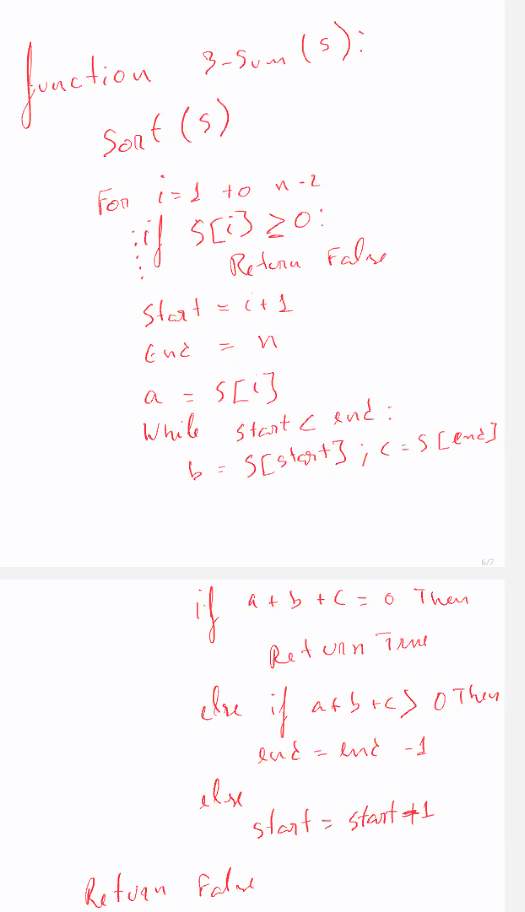 function 3-Sum (s):
Sort (s)
For i = 1 to n-2
if S[i] ≥ 0:
Return False
Start = i + 1
End = n
a = S[i]
While start < end:
b = S[start] ; c = S[end]
6/7
if a + b + c = 0 Then
Return True
else if a+b+c > 0 Then
end = end -1
else
start = start +1
Return False